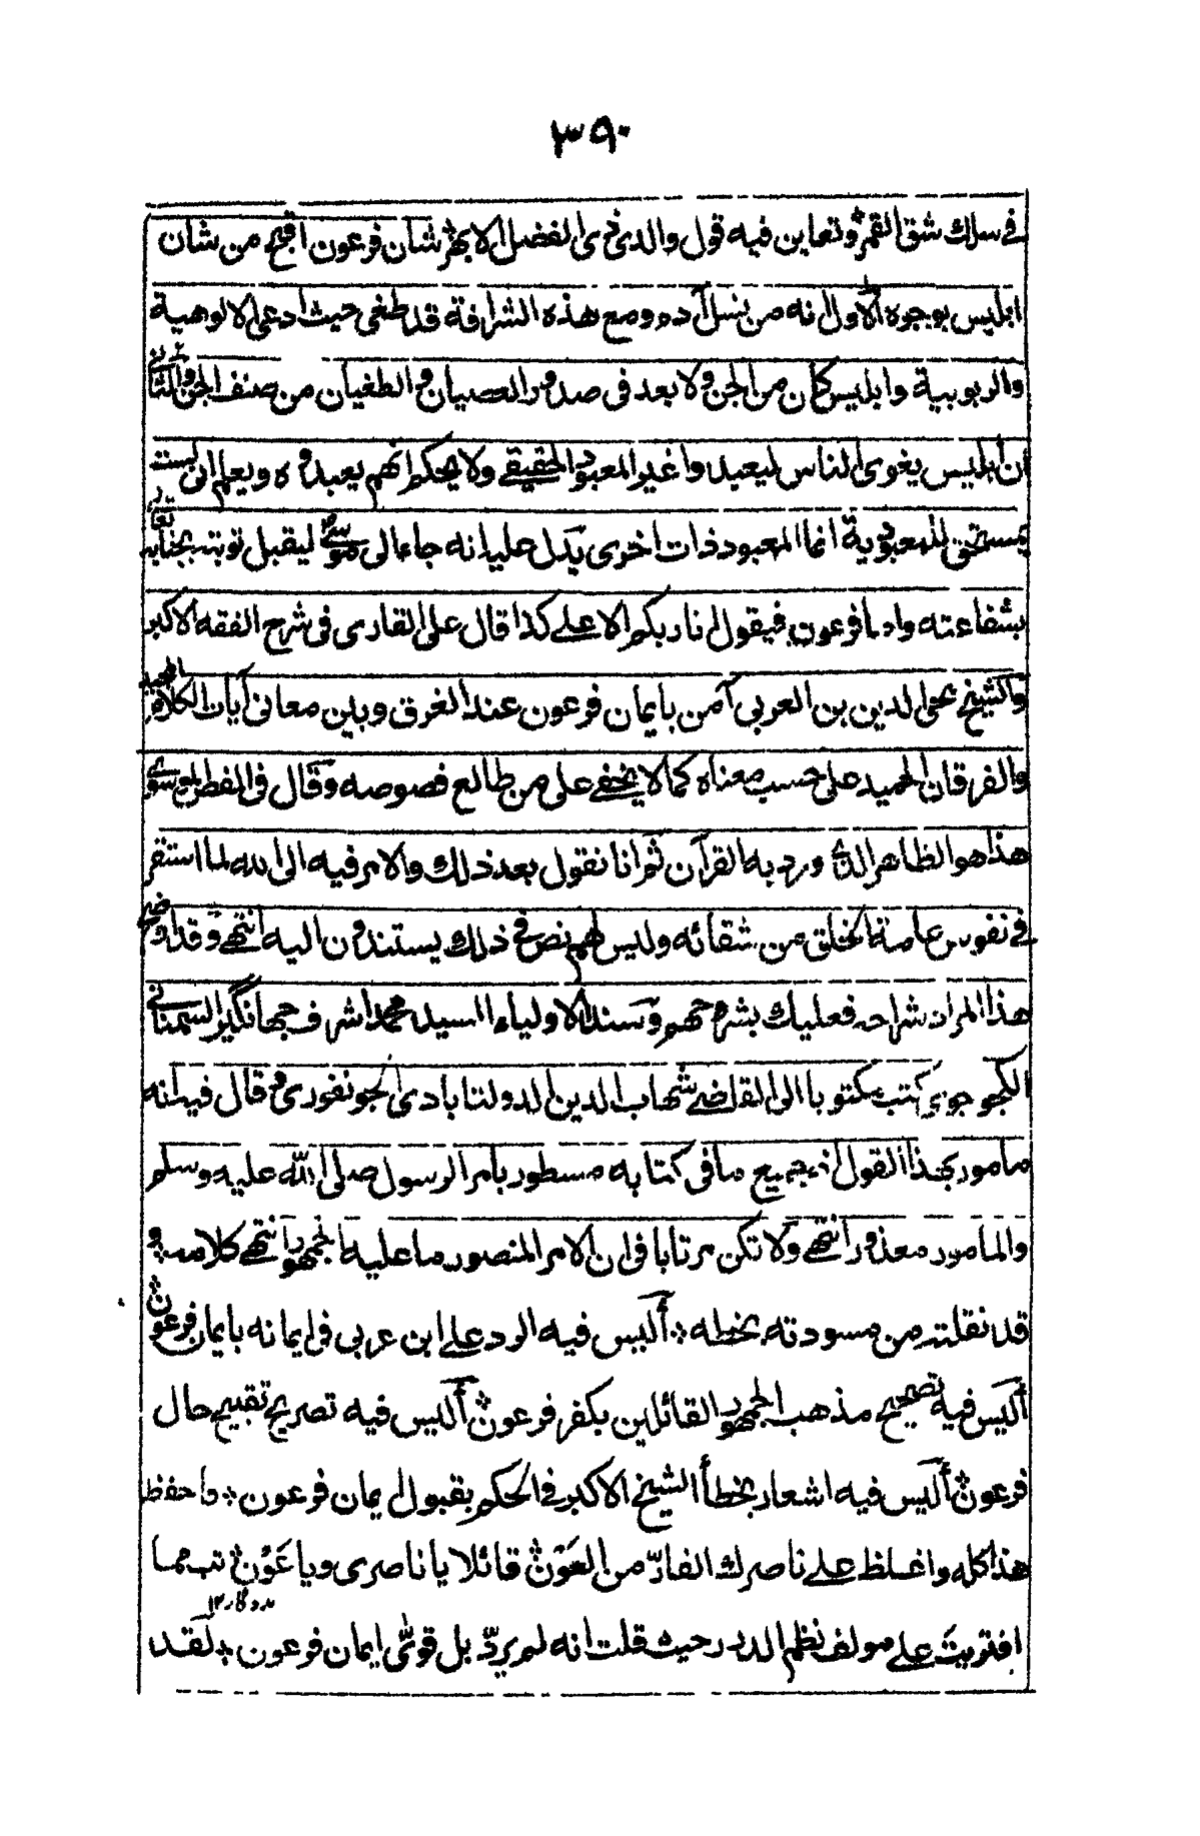 ٣٩٠
في سلك شق القمر وتعاين فيه قول والدى ذى الفضل الابهر شان فرعون اقبح من شان
ابليس بوجوه الاول انه من نسل آدم ومع هذه الشرافة قد طغى حيث ادعى الالوهية
والربوبية وابليس كان من الجن ولا بعد فى صدور العصيان والطغيان من صنف الجن والثانى
ان ابليس يغوى الناس ليعبدوا غير المعبود الحقيقي ولا يحكم انهم يعبدوه ويعلم انى لست
بمستحق للمعبودية انما المعبود ذات اخرى يدل عليه انه جاء الى موسى ليقبل توبته بجنابه تعالى
بشفاعته واما فرعون فيقول انا ربكم الاعلى كذا قال على القارى فى شرح الفقه الاكبر
والشيخ محى الدين بن العربي آمن بايمان فرعون عند الغرق وبين معانى آيات الكلام المجيد
والفرقان الحميد على حسب معناه كما لا يخفى على من طالع فصوصه وقال فى الفص الموسوى
هذا هو الظاهر الذى ورد به القرآن ثم انا نقول بعد ذلك والامر فيه الى الله لما استقر
في نفوس عامة الخلق من شقائه وليس لهم نص في ذلك يستندون اليه انتهى وقد اوضح
هذا المرام شراحه فعليك بشروحهم وسند الاولياء السيد محمد اشرف جهانگير السمنانى
الكچوچوى كتب مكتوبا الى القاضى شهاب الدين الدولتابادى الجونفورى وقال فيه انه
مامور بهذا القول اذ جميع ما فى كتابه مسطور بامر الرسول صلى الله عليه وسلم
والمامور معذور انتهى ولا تكن مرتابا فى ان الامر المنصور ما عليه الجمهور انتهى كلامه و
قد نقلته من مسودته بخطه أليس فيه الرد على ابن عربى فى ايمانه بايمان فرعون
أليس فيه تصحيح مذهب الجمهور القائلين بكفر فرعون أليس فيه تصريح تقبيح حال
فرعون أليس فيه اشعار بخطأ الشيخ الاكبر في الحكم بقبول ايمان فرعون واحفظ
هذا كله واغلظ على ناصرك الفارّ من العَوْن قائلا يا ناصرى ويا عَوْن تب مما
مددگار ١٢
افتريت على مولف نظم الدرر حيث قلت انه لم يردّ بل قوّى ايمان فرعون لقد